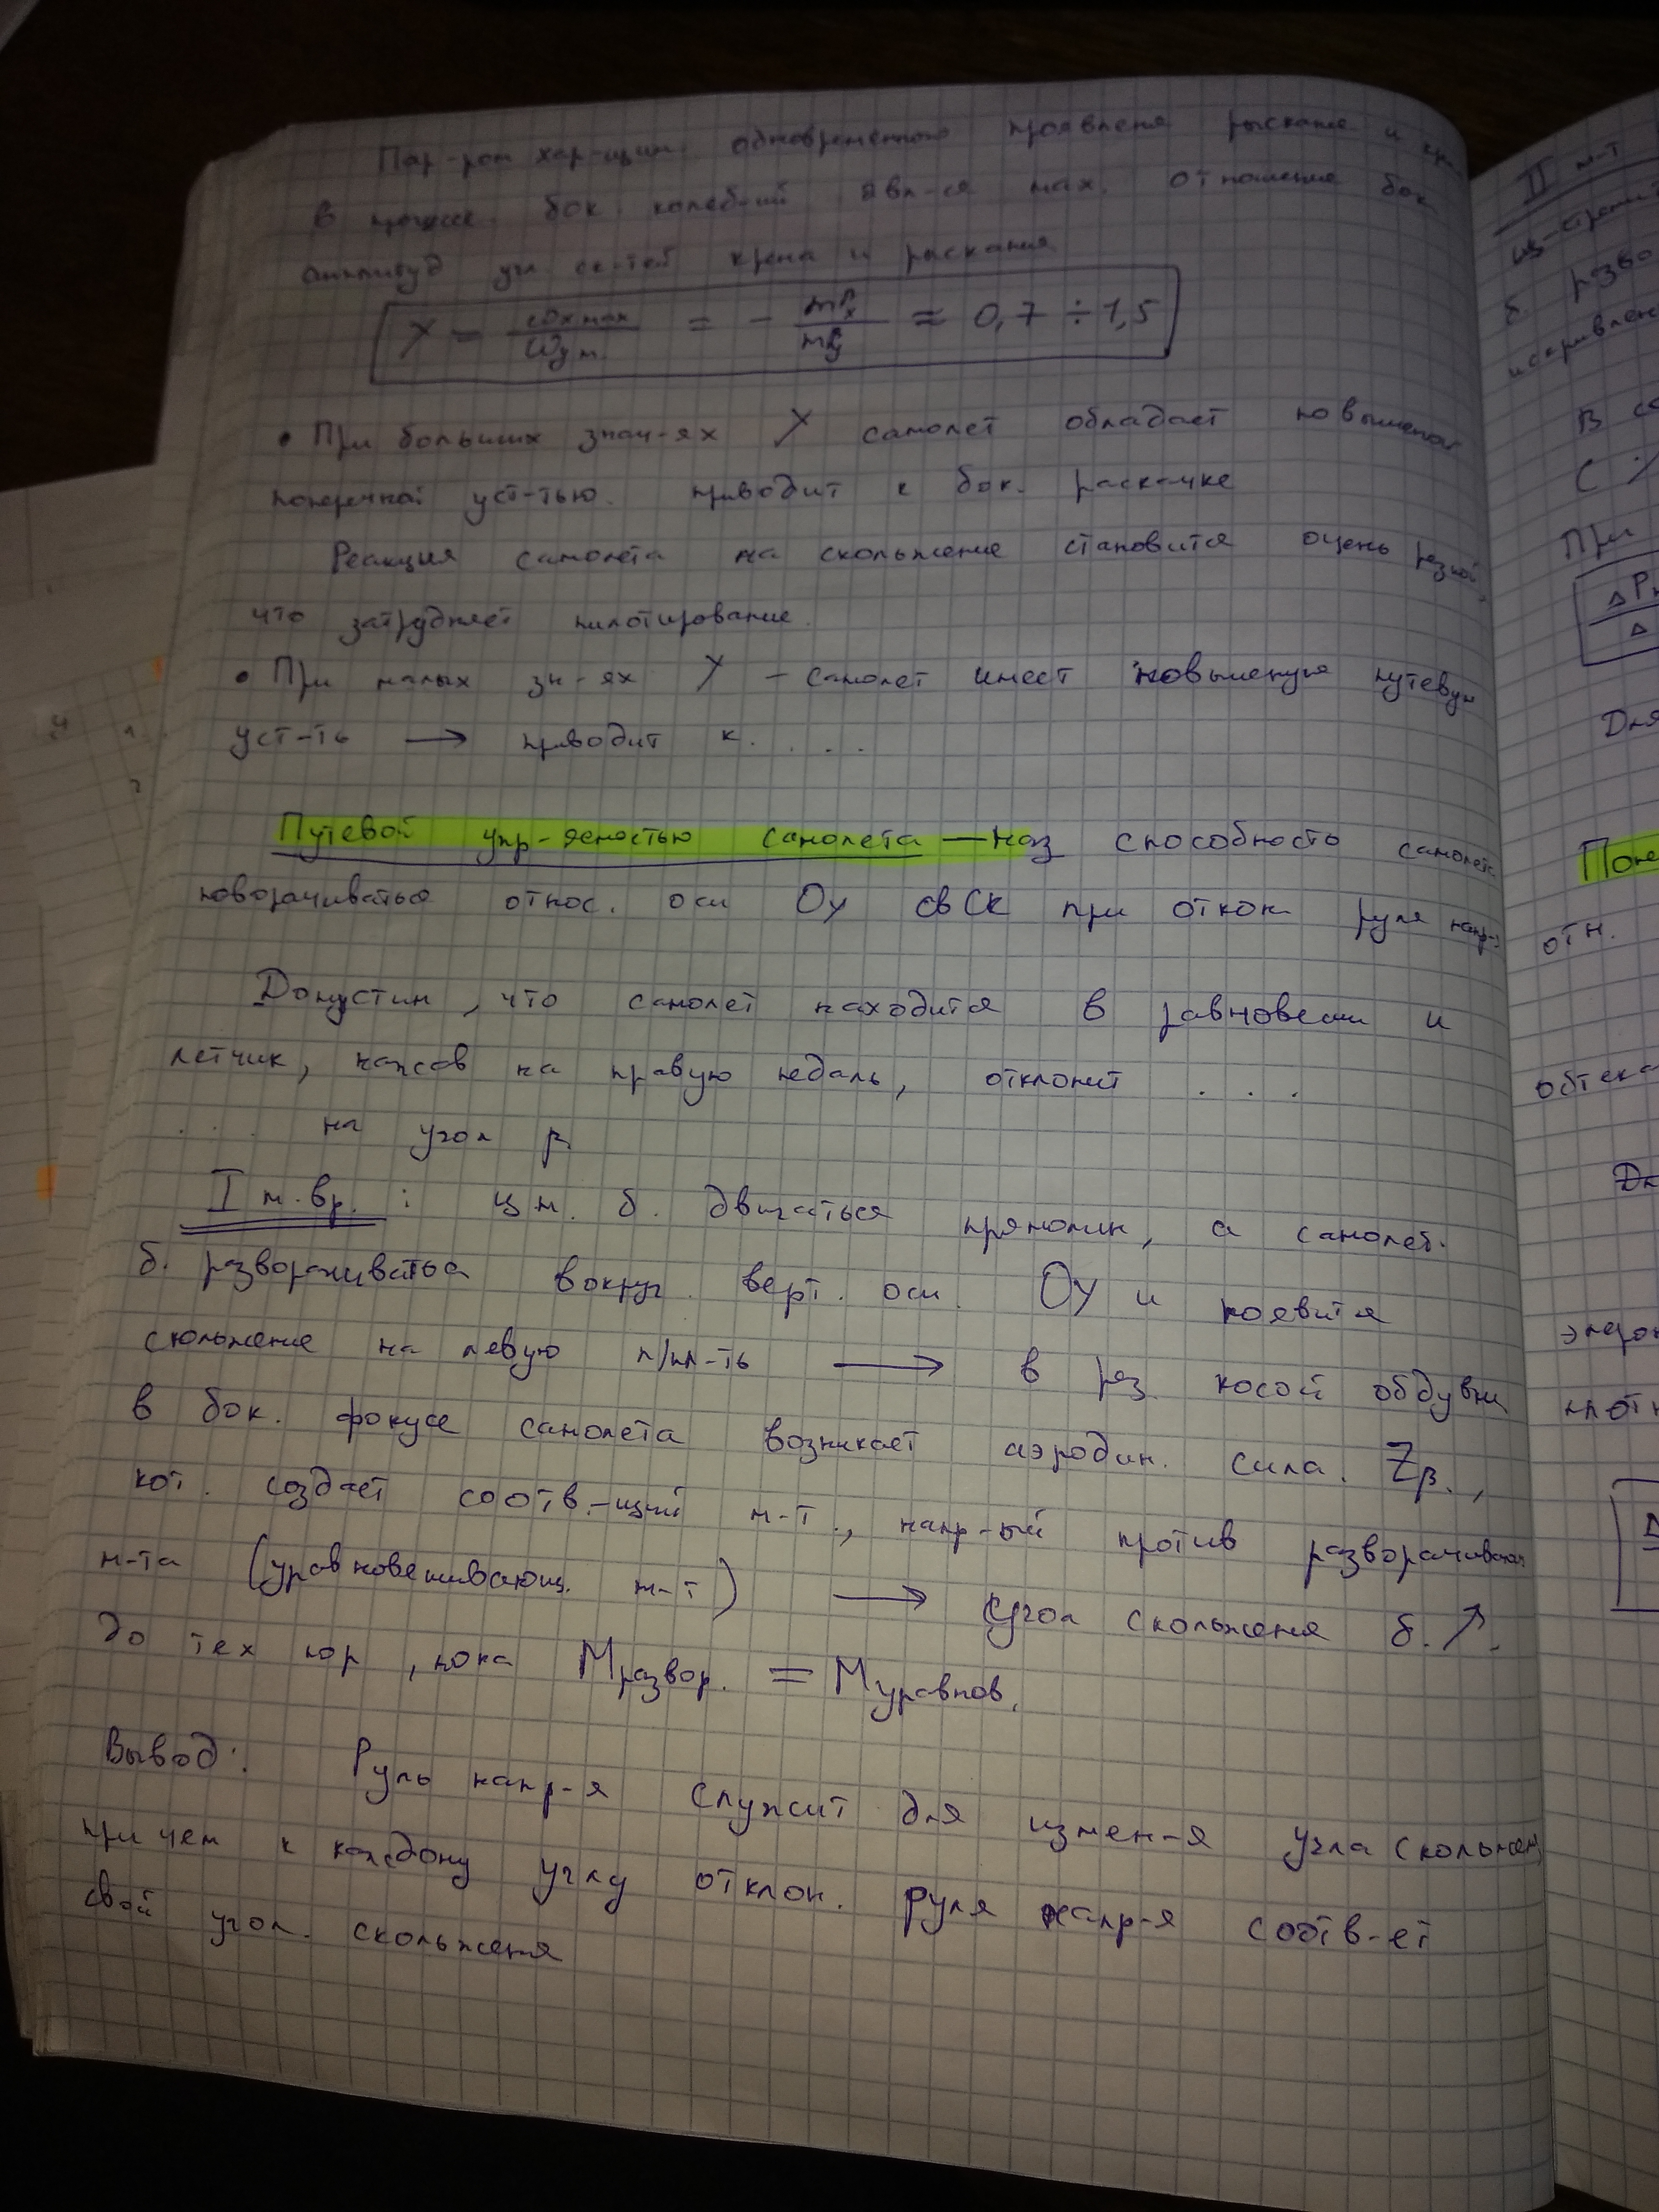 Пар-ром хар-щим одновременного проявления рыскание и кр
в процессе бок. колебаний явл-ся мах. отношение бок
амплитуд угл ск-тей крена и рыскания
χ = ωx max / ωy m = - mβx / mβy ≈ 0,7 ÷ 1,5
• При больших знач-ях χ самолет обладает повышеной
поперечной уст-тью. приводит к бок. раскачке
Реакция самолета на скольжение становится очень резкой,
что затрудняет пилотирование.
• При малых зн-ях χ – самолет имеет повышеную путевую
уст-ть → приводит к . . . .
Путевой упр-яемостью самолета — наз способность самолета
поворачиваться относ. оси Oy свСК при откл. руля напр-я
Допустим, что самолет находится в равновесии и
летчик, нажав на правую педаль, отклонит . . .
. . . на угол β
I м.вр. : цм. б. двигаться прямолин, а самолет.
б. разворачиваться вокруг верт. оси. Oy и появится
скольжение на левую п/пл-ть → в рез. косой обдувки
в бок. фокусе самолета возникает аэродин. сила. Zβ.,
кот. создает соотв.-щий м-т., напр-ый против разворачивающ
м-та (уравновешивающ. м-т) → угол скольжения б. ↗.
до тех пор, пока Mразвор. = Mуравнов.
Вывод: Руль напр-я служит для измен-я угла скольжен
при чем к каждому углу отклон. руля напр-я соотв-ет
свой угол. скольжения
II м-т
б. разво
искривлен
В со
При
ΔPн
Δ
Для
Попе
отн.
обтека
элерон